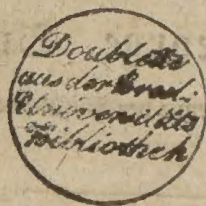 Doublette
aus der Brsl.
Universitäts
Bibliothek